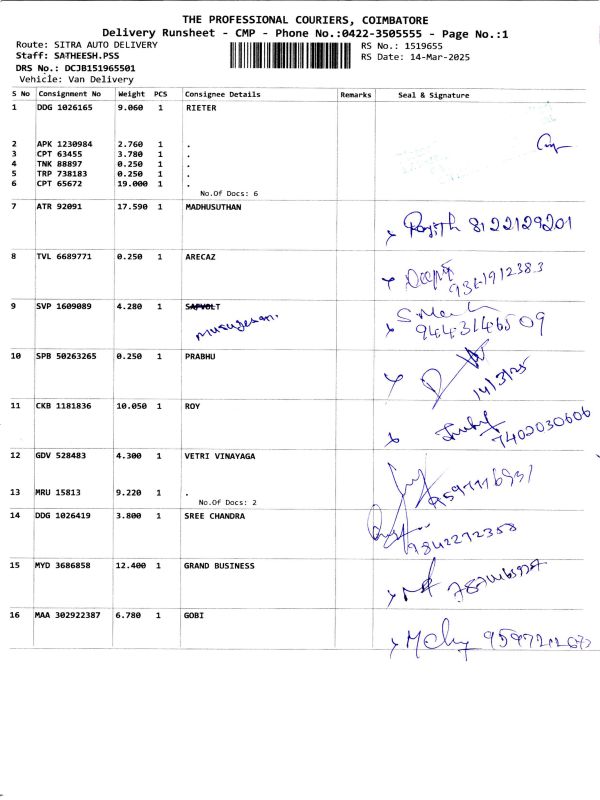 THE PROFESSIONAL COURIERS, COIMBATORE
Delivery Runsheet - CMP - Phone No.:0422-3505555 - Page No.:1
Route: SITRA AUTO DELIVERY
Staff: SATHEESH.PSS
DRS No.: DCJB151965501
Vehicle: Van Delivery
RS No.: 1519655
RS Date: 14-Mar-2025
S No Consignment No Weight PCS Consignee Details Remarks Seal & Signature
1 DDG 1026165 9.060 1 RIETER
2 APK 1230984 2.760 1 .
3 CPT 63455 3.780 1 .
4 TNK 88897 0.250 1 .
5 TRP 738183 0.250 1 .
6 CPT 65672 19.000 1 .
No.Of Docs: 6
7 ATR 92091 17.590 1 MADHUSUTHAN
8122129201
8 TVL 6689771 0.250 1 ARECAZ
9 SVP 1609089 4.280 1 SAFVOLT
murugesan.
9443146509
10 SPB 50263265 0.250 1 PRABHU
14/3/25
11 CKB 1181836 10.050 1 ROY
7402030606
12 GDV 528483 4.300 1 VETRI VINAYAGA
13 MRU 15813 9.220 1 .
No.Of Docs: 2
14 DDG 1026419 3.800 1 SREE CHANDRA
9842272358
15 MYD 3686858 12.400 1 GRAND BUSINESS
16 MAA 302922387 6.780 1 GOBI